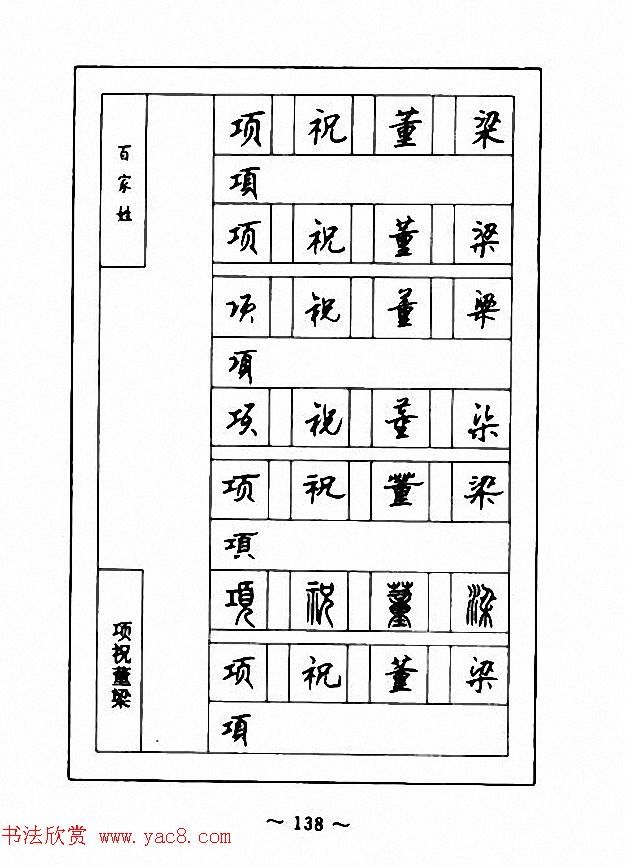 百家姓
项祝董梁
项 祝 董 梁
項
项 祝 董 梁
项 祝 董 梁
項
项 祝 董 梁
项 祝 董 梁
項
項 祝 董 梁
项 祝 董 梁
項
~ 138 ~
书法欣赏 www.yac8.com